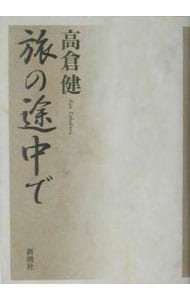 高倉健
Ken Takakura
旅の途中で
新潮社